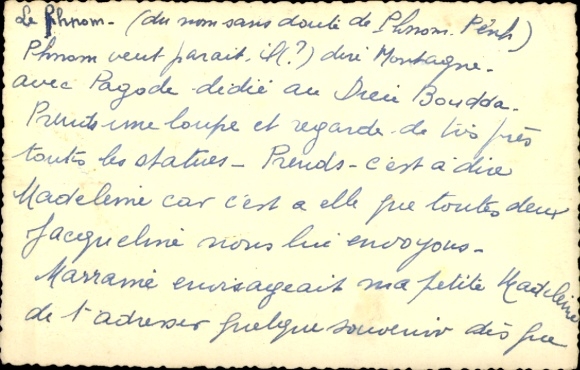 Le Phnom - (du nom sans doute de Phnom. Pênh)
Phnom veut parait, il(?) dire Montagne -
avec Pagode dédié au Dieu Boudda -
Prends une loupe et regarde de très près
toutes les statues - Prends - c'est à dire
Madeleine car c'est a elle que toutes deux
Jacqueline nous lui envoyons -
Marraine envisageait ma petite Madeleine
de t'adresser quelque souvenir dès que